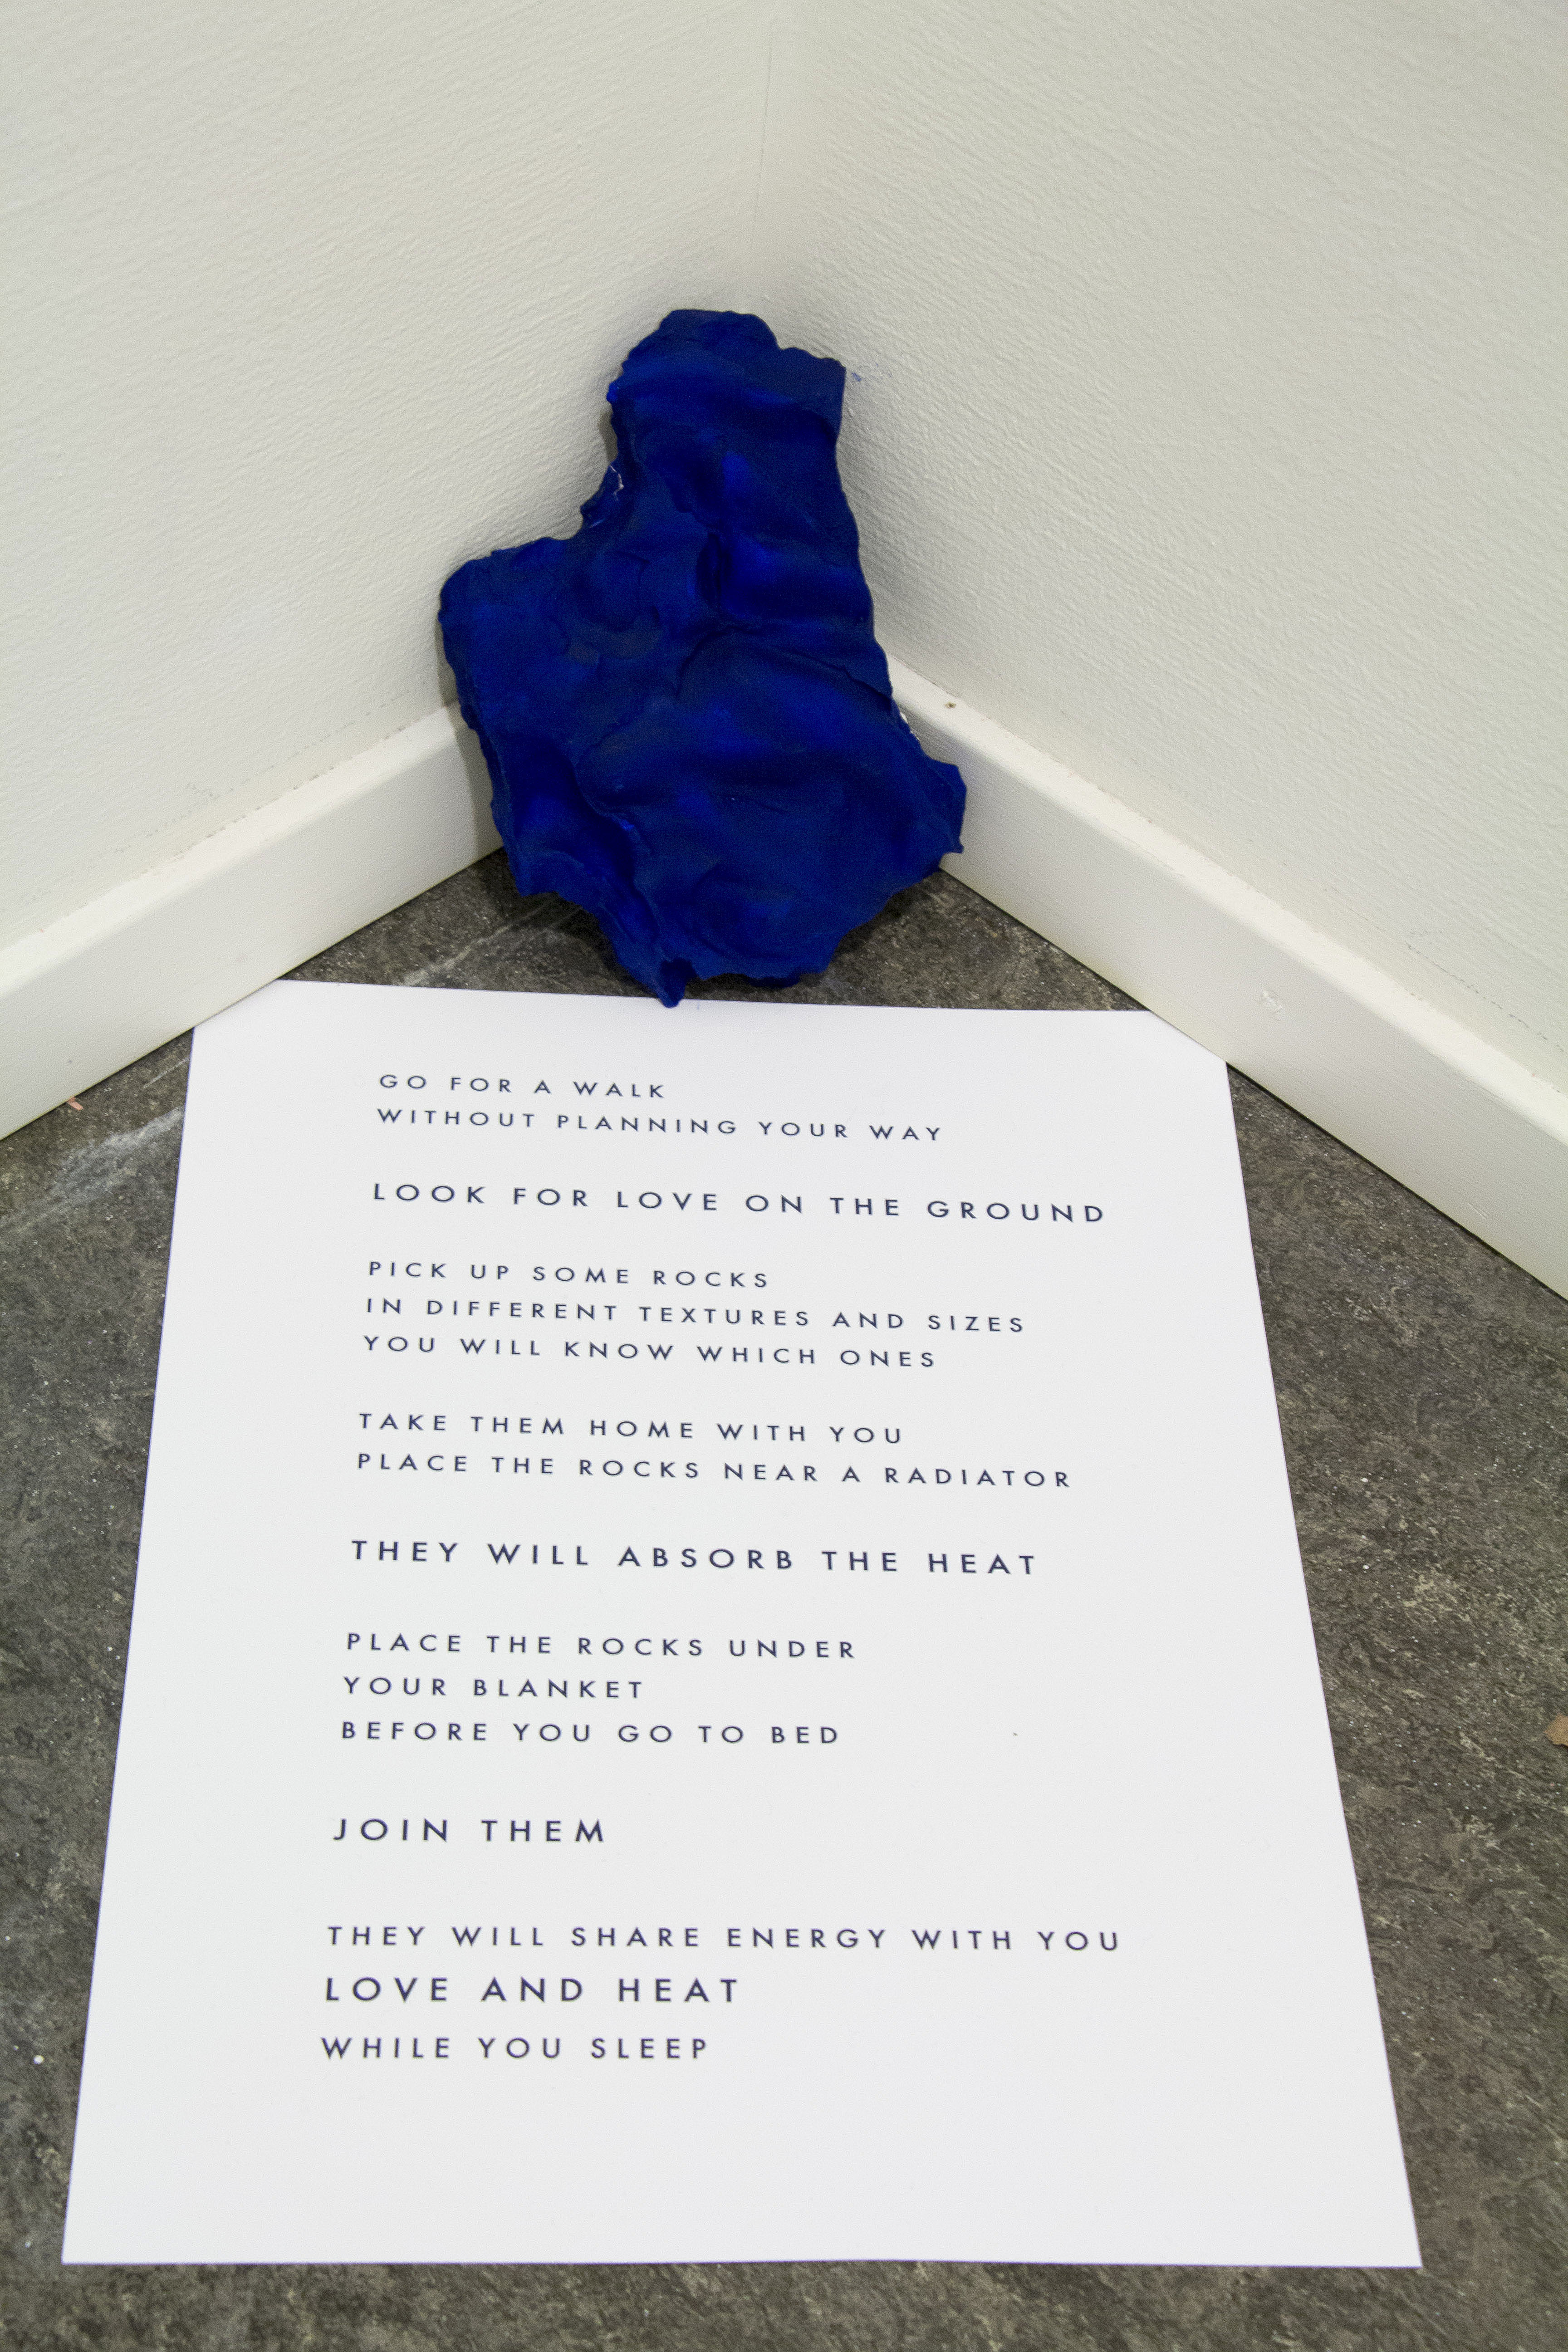 GO FOR A WALK
WITHOUT PLANNING YOUR WAY
LOOK FOR LOVE ON THE GROUND
PICK UP SOME ROCKS
IN DIFFERENT TEXTURES AND SIZES
YOU WILL KNOW WHICH ONES
TAKE THEM HOME WITH YOU
PLACE THE ROCKS NEAR A RADIATOR
THEY WILL ABSORB THE HEAT
PLACE THE ROCKS UNDER
YOUR BLANKET
BEFORE YOU GO TO BED
JOIN THEM
THEY WILL SHARE ENERGY WITH YOU
LOVE AND HEAT
WHILE YOU SLEEP